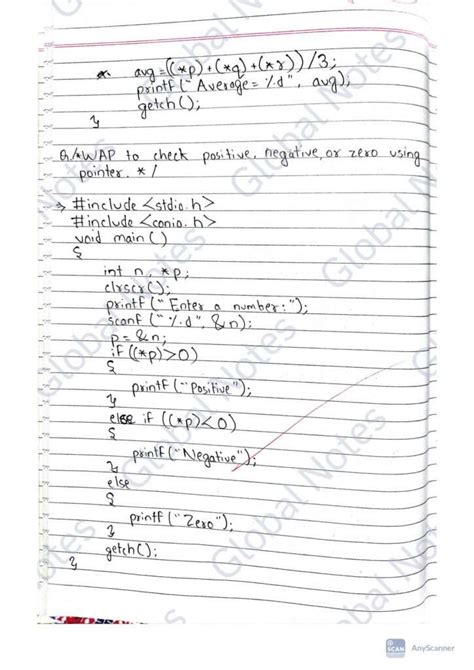 avg=((*p)+(*q)+(*r))/3;
printf("Average=%d", avg);
getch();
}
Q./*WAP to check positive, negative, or zero using
pointer. */
→ #include <stdio.h>
#include <conio.h>
void main()
{
int n, *p;
clrscr();
printf("Enter a number:");
scanf("%d", &n);
p=&n;
if((*p)>0)
{
printf("Positive");
}
else if ((*p)<0)
{
printf("Negative");
}
else
{
printf("Zero");
}
getch();
}
Global Notes
Global Notes
Global Notes
Global Notes
Global Notes
Global Notes
SCAN AnyScanner